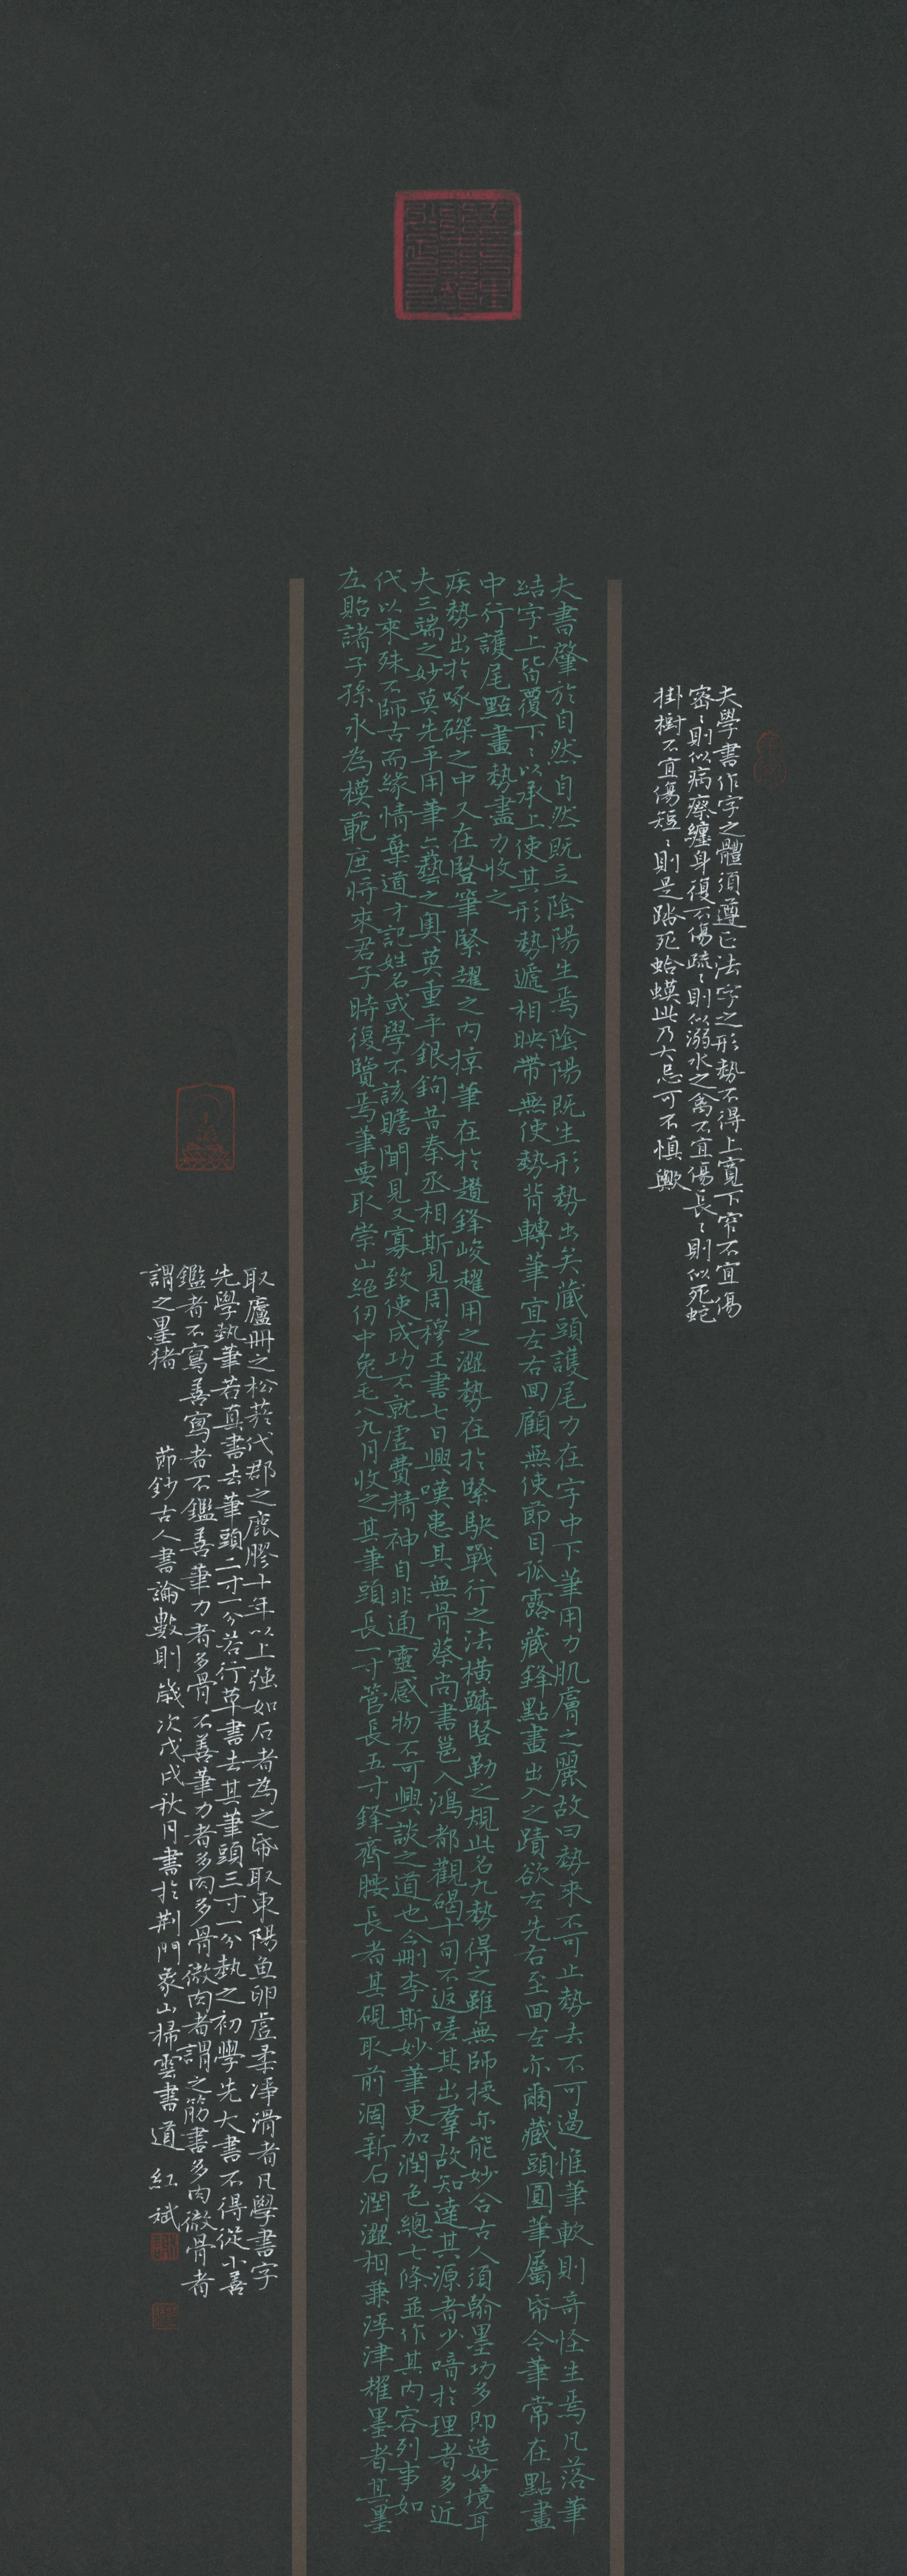 夫學書作字之體須遵正法字之形勢不得上寬下窄不宜傷
密〻則似病瘵纏身復不傷疏〻則似溺水之禽不宜傷長〻則似死蛇
掛樹不宜傷短〻則是踏死蛤蟆此乃大忌可不慎歟
夫書肇於自然自然既立陰陽生焉陰陽既生形勢出矣藏頭護尾力在字中下筆用力肌膚之麗故曰勢來不可止勢去不可遏惟筆軟則奇怪生焉凡落筆
結字上皆覆下〻以承上使其形勢遞相映帶無使勢背轉筆宜左右回顧無使節目孤露藏鋒點畫出入之蹟欲左先右至回左亦爾藏頭圓筆屬帋令筆常在點畫
中行護尾點畫勢盡力收之
疾勢出於啄磔之中又在豎筆緊趯之內掠筆在於趲鋒峻趯用之澀勢在於緊駃戰行之法橫鱗豎勒之規此名九勢得之雖無師授亦能妙合古人須翰墨功多即造妙境耳
夫三端之妙莫先乎用筆六藝之奧莫重乎銀鉤昔秦丞相斯見周穆王書七日興嘆患其無骨蔡尚書邕入鴻都觀碣十旬不返嗟其出羣故知達其源者少喑於理者多近
代以來殊不師古而緣情棄道才記姓名或學不該贍聞見又寡致使成功不就虛費精神自非通靈感物不可興談之道也今刪李斯妙筆更加潤色總七條並作其內容列事如
左貽諸子孫永為模範庶將來君子時復覽焉筆要取崇山絕仞中兔毛八九月收之其筆頭長一寸管長五寸鋒齊腰長者其硯取前涸新石潤澀相兼浮津耀墨者其墨
取廬冊之松菸代郡之鹿膠十年以上強如石者為之帋取東陽魚卵虛柔凈滑者凡學書字
先學執筆若真書去筆頭二寸一分若行草書去其筆頭三寸一分執之初學先大書不得從小善
鑑者不寫善寫者不鑑善筆力者多骨不善筆力者多肉多骨微肉者謂之筋書多肉微骨者
謂之墨猪　節鈔古人書論數則歲次戊戌秋月書於荆門象山掃雲書道　紅斌